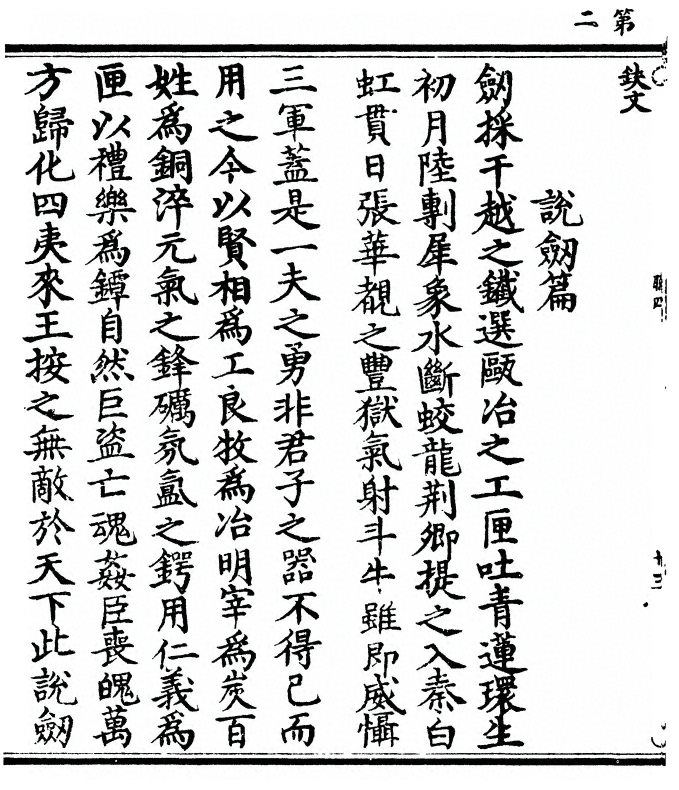 第二
鈌文
說劔篇
劔採干越之鐵選歐冶之工匣吐青蓮環生
初月陸剸犀象水斷蛟龍荆卿提之入秦白
虹貫日張華覩之豐獄氣射斗牛雖即威懾
三軍蓋是一夫之勇非君子之器不得已而
用之今以賢相為工良牧為冶明宰為炭百
姓為銅淬元氣之鋒礪氛氳之鍔用仁義為
匣以禮樂為鐔自然巨盜亡魂姦臣喪魄萬
方歸化四夷來王按之無敵於天下此說劔